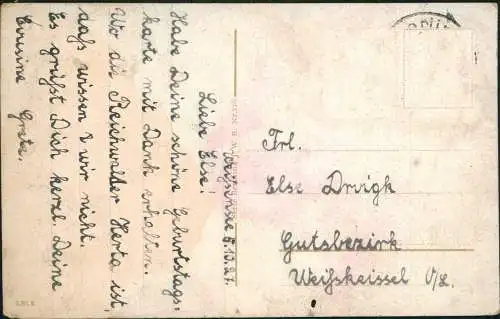 Weißensee 5.10.27.
Liebe Else!
Habe Deine schöne Geburtstags=
karte mit Dank erhalten.
Wo die Reichwalder Herta ist,
daß wissen wir nicht.
Es grüßt Dich herzl. Deine
Cousine Grete.
Frl.
Else
Gutsbezirk
Weißkeissel O/L.